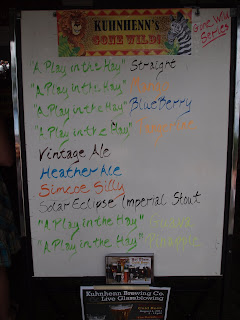 KUHNHENN'S
GONE WILD!
Gone Wild
Series
"A Play in the Hay" Straight
"A Play in the Hay"
"A Play in the Hay" BlueBerry
"A Play in the Hay"
Vintage Ale
Heather Ale
Simcoe Silly
Solar Eclipse Imperial Stout
"A Play in the Hay" Guava
"A Play in the Hay" Pinapple
Kuhnhenn Brewing Co.
Live Glassblowing